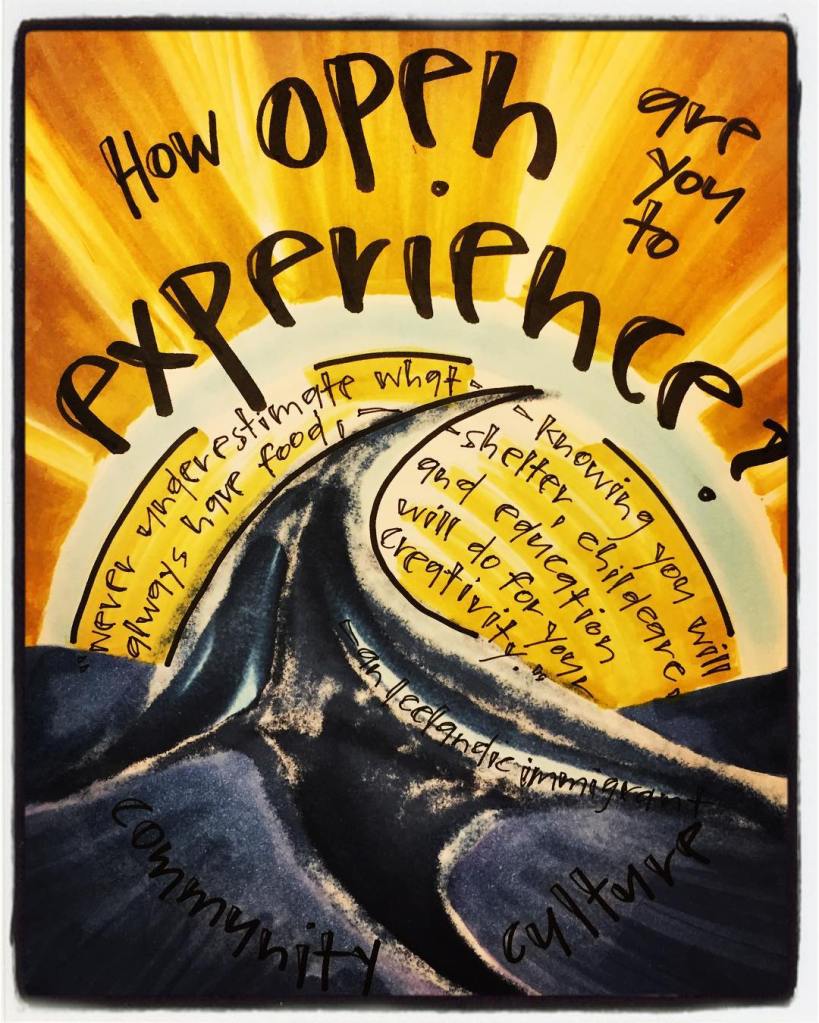 How open are you to
experience?
"Never underestimate what
always have food,
-knowing you will
-shelter, childcare,
and education
will do for your
creativity."
-an Icelandic immigrant
community
culture